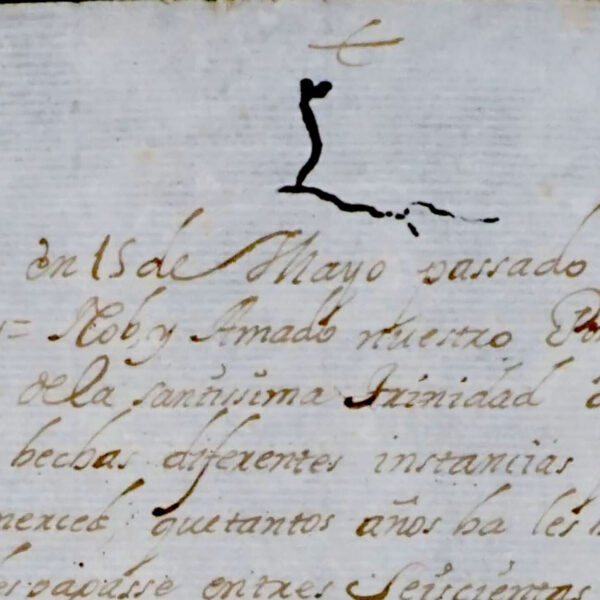 en 15 de Mayo passado
Nob, y Amado nuestro
de la santissima Trinidad
hechas diferentes instancias
que tantos años ha les
entres Seiscientas